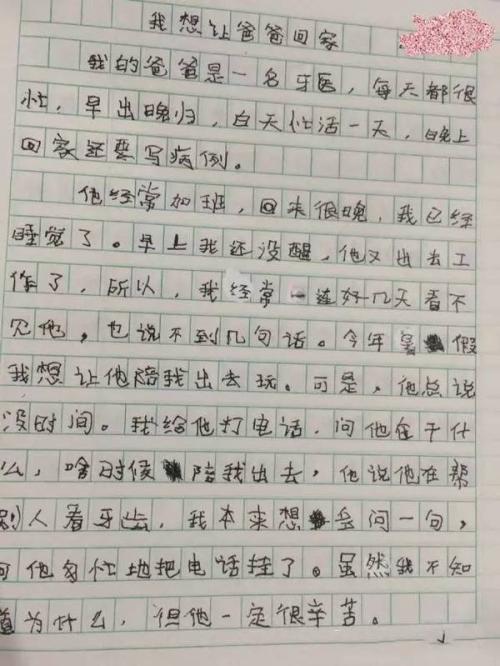 我想让爸爸回家
我的爸爸是一名牙医，每天都很
忙，早出晚归，白天忙活一天，晚上
回家还要写病例。
他经常加班，回来很晚，我已经
睡觉了。早上我还没醒，他又出去工
作了，所以，我经常一连好几天看不
见他，也说不到几句话。今年暑假
我想让他陪我出去玩。可是，他总说
没时间。我给他打电话，问他在干什
么，啥时候陪我出去，他说他在帮
别人看牙齿，我本来想多问一句，
可他匆忙地把电话挂了。虽然我不知
道为什么，但他一定很辛苦。